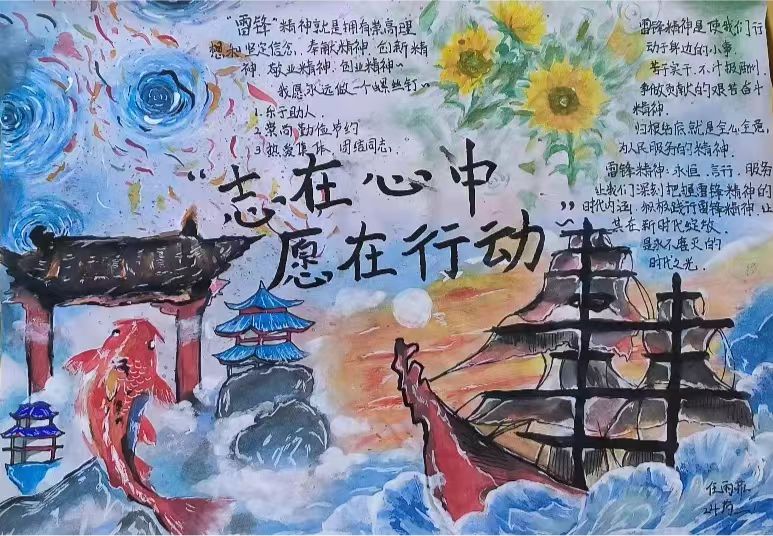 "雷锋"精神就是拥有崇高理
想和坚定信念，奉献精神、创新精
神、敬业精神、创业精神～
我愿永远做一个螺丝钉～
1.乐于助人
2.崇尚勤俭节约
3.热爱集体、团结同志.
"志在心中
愿在行动"
雷锋精神是使我们行
动于身边的小事.
苦于实干、不计报酬，
争做贡献的艰苦奋斗
精神.
归根结底就是全心全意，
为人民服务的精神.
雷锋精神·永恒、言行、服务
让我们深刻把握雷锋精神的
时代内涵，积极践行雷锋精神，让
其在新时代绽放
永不磨灭的
时代之光.